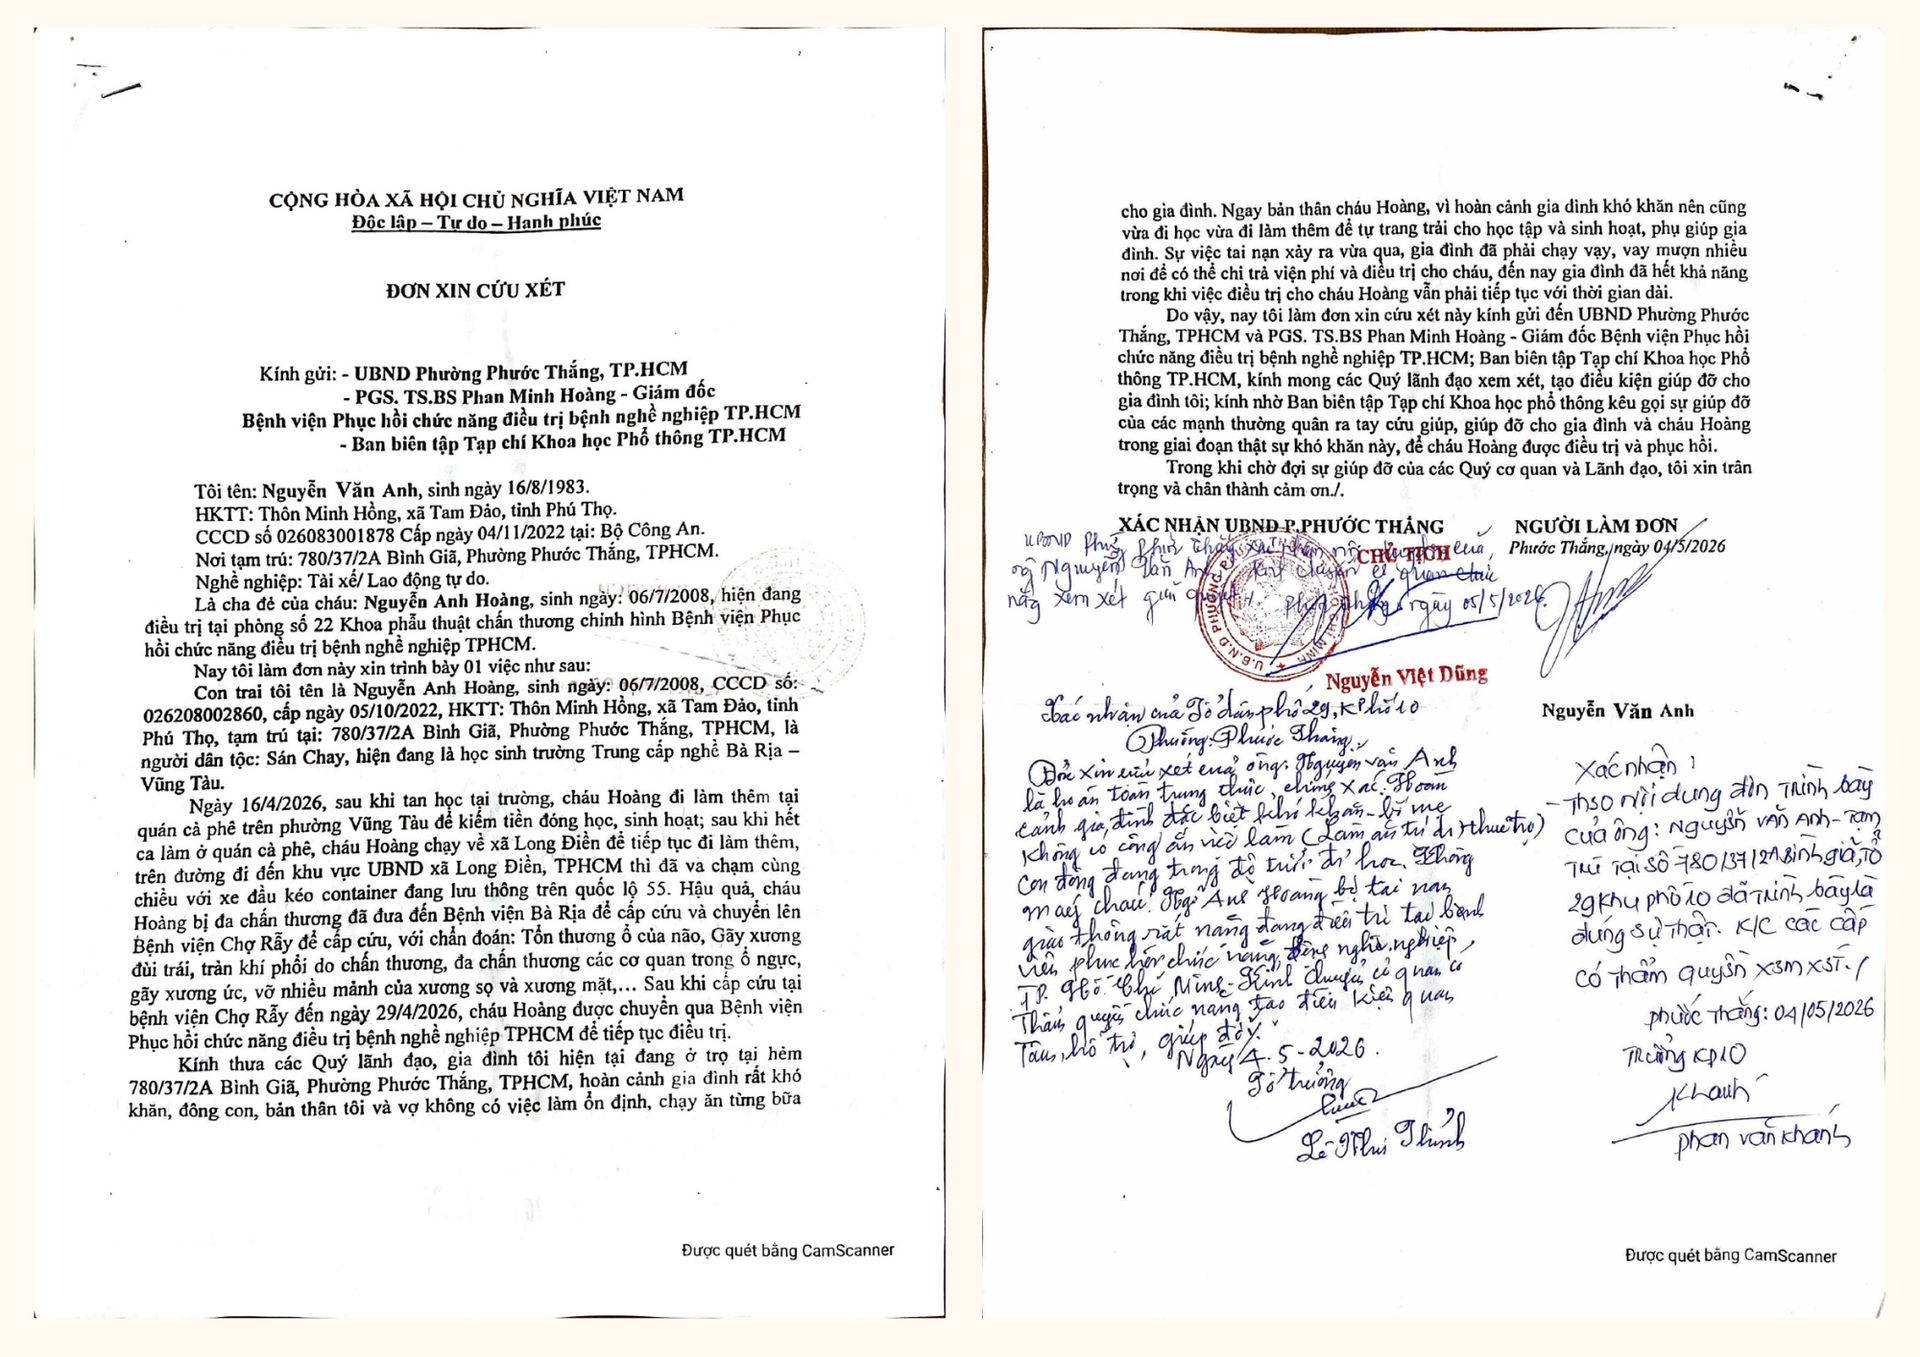 CỘNG HÒA XÃ HỘI CHỦ NGHĨA VIỆT NAM
Độc lập – Tự do – Hạnh phúc
ĐƠN XIN CỨU XÉT
Kính gửi: - UBND Phường Phước Thắng, TP.HCM
- PGS. TS.BS Phan Minh Hoàng - Giám đốc
Bệnh viện Phục hồi chức năng điều trị bệnh nghề nghiệp TP.HCM
- Ban biên tập Tạp chí Khoa học Phổ thông TP.HCM
Tôi tên: Nguyễn Văn Anh, sinh ngày 16/8/1983.
HKTT: Thôn Minh Hồng, xã Tam Đảo, tỉnh Phú Thọ.
CCCD số 026083001878 Cấp ngày 04/11/2022 tại: Bộ Công An.
Nơi tạm trú: 780/37/2A Bình Giã, Phường Phước Thắng, TPHCM.
Nghề nghiệp: Tài xế/ Lao động tự do.
Là cha đẻ của cháu: Nguyễn Anh Hoàng, sinh ngày: 06/7/2008, hiện đang
điều trị tại phòng số 22 Khoa phẫu thuật chấn thương chỉnh hình Bệnh viện Phục
hồi chức năng điều trị bệnh nghề nghiệp TPHCM.
Nay tôi làm đơn này xin trình bày 01 việc như sau:
Con trai tôi tên là Nguyễn Anh Hoàng, sinh ngày: 06/7/2008, CCCD số:
026208002860, cấp ngày 05/10/2022, HKTT: Thôn Minh Hồng, xã Tam Đảo, tỉnh
Phú Thọ, tạm trú tại: 780/37/2A Bình Giã, Phường Phước Thắng, TPHCM, là
người dân tộc: Sán Chay, hiện đang là học sinh trường Trung cấp nghề Bà Rịa –
Vũng Tàu.
Ngày 16/4/2026, sau khi tan học tại trường, cháu Hoàng đi làm thêm tại
quán cà phê trên phường Vũng Tàu để kiếm tiền đóng học, sinh hoạt; sau khi hết
ca làm ở quán cà phê, cháu Hoàng chạy về xã Long Điền để tiếp tục đi làm thêm,
trên đường đi đến khu vực UBND xã Long Điền, TPHCM thì đã va chạm cùng
chiều với xe đầu kéo container đang lưu thông trên quốc lộ 55. Hậu quả, cháu
Hoàng bị đa chấn thương đã đưa đến Bệnh viện Bà Rịa để cấp cứu và chuyển lên
Bệnh viện Chợ Rẫy để cấp cứu, với chẩn đoán: Tổn thương ổ của não, Gãy xương
đùi trái, tràn khí phổi do chấn thương, đa chấn thương các cơ quan trong ổ ngực,
gãy xương ức, vỡ nhiều mảnh của xương sọ và xương mặt,... Sau khi cấp cứu tại
bệnh viện Chợ Rẫy đến ngày 29/4/2026, cháu Hoàng được chuyển qua Bệnh viện
Phục hồi chức năng điều trị bệnh nghề nghiệp TPHCM để tiếp tục điều trị.
Kính thưa các Quý lãnh đạo, gia đình tôi hiện tại đang ở trọ tại hẻm
780/37/2A Bình Giã, Phường Phước Thắng, TPHCM, hoàn cảnh gia đình rất khó
khăn, đông con, bản thân tôi và vợ không có việc làm ổn định, chạy ăn từng bữa
Được quét bằng CamScanner
cho gia đình. Ngay bản thân cháu Hoàng, vì hoàn cảnh gia đình khó khăn nên cũng
vừa đi học vừa đi làm thêm để tự trang trải cho học tập và sinh hoạt, phụ giúp gia
đình. Sự việc tai nạn xảy ra vừa qua, gia đình đã phải chạy vạy, vay mượn nhiều
nơi để có thể chi trả viện phí và điều trị cho cháu, đến nay gia đình đã hết khả năng
trong khi việc điều trị cho cháu Hoàng vẫn phải tiếp tục với thời gian dài.
Do vậy, nay tôi làm đơn xin cứu xét này kính gửi đến UBND Phường Phước
Thắng, TPHCM và PGS. TS.BS Phan Minh Hoàng - Giám đốc Bệnh viện Phục hồi
chức năng điều trị bệnh nghề nghiệp TP.HCM; Ban biên tập Tạp chí Khoa học Phổ
thông TP.HCM, kính mong các Quý lãnh đạo xem xét, tạo điều kiện giúp đỡ cho
gia đình tôi; kính nhờ Ban biên tập Tạp chí Khoa học phổ thông kêu gọi sự giúp đỡ
của các mạnh thường quân ra tay cứu giúp, giúp đỡ cho gia đình và cháu Hoàng
trong giai đoạn thật sự khó khăn này, để cháu Hoàng được điều trị và phục hồi.
Trong khi chờ đợi sự giúp đỡ của các Quý cơ quan và Lãnh đạo, tôi xin trân
trọng và chân thành cảm ơn./.
XÁC NHẬN UBND P.PHƯỚC THẮNG
CHỦ TỊCH
UBND Phường Phước Thắng xác nhận
ông Nguyễn Văn Anh Kính chuyển cơ quan chức
năng xem xét giải quyết
Phước Thắng, ngày 05/5/2026.
Nguyễn Việt Dũng
NGƯỜI LÀM ĐƠN
Phước Thắng, ngày 04/5/2026
Nguyễn Văn Anh
Xác nhận của Tổ dân phố 29, KPhố 10
Phường: Phước Thắng.
Đơn xin cứu xét của ông: Nguyễn Văn Anh
là hoàn toàn trung thực, chính xác. Hoàn
cảnh gia đình đặc biệt khó khăn - bố mẹ
không có công ăn việc làm (Làm ăn tự do, thuê trọ)
Con đông đang trong độ tuổi đi học. Không
may cháu: Ng. Anh Hoàng bị tai nạn
giao thông rất nặng đang điều trị tại bệnh
viện phục hồi chức năng, bệnh nghề nghiệp,
TP. Hồ Chí Minh - Kính chuyển cơ quan có
Thẩm quyền chức năng tạo điều kiện quan
Tâm, hỗ trợ, giúp đỡ
Ngày 4.5-2026.
Tổ trưởng
Lê Như Thỉnh
Xác nhận:
- Theo Nội dung đơn Trình bày
của ông: Nguyễn Văn Anh - Tạm
Trú Tại số 780/37/2A Bình giã, Tổ
29 Khu phố 10 đã Trình bày là
đúng sự Thật. K/C các cấp
có Thẩm quyền xem xét./
Phước Thắng: 04/05/2026
Trưởng KP10
Khanh
Phan Văn Khánh
Được quét bằng CamScanner